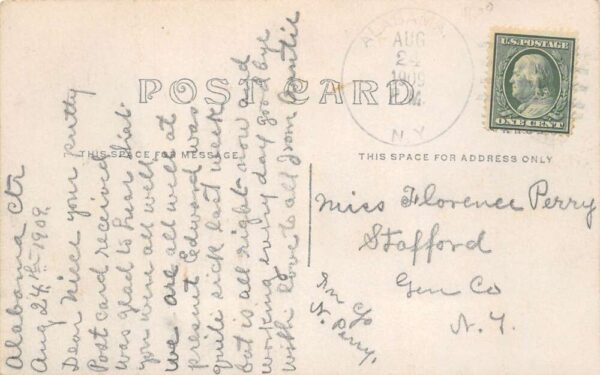 POST CARD
THIS SPACE FOR MESSAGE
THIS SPACE FOR ADDRESS ONLY
ALABAMA
AUG
24
1909
N.Y.
U.S. POSTAGE
ONE CENT
Alabama Ctr
Aug 24th 1909.
Dear Niece your pretty
Post card received
was glad to hear that
you were all well
we are all well at
present Edward was
quite sick last week
but is all right now and
working every day goodbye
with love to all from Auntie
Miss Florence Perry
Stafford
Gen Co
N.Y.
In c/o
N. Perry.